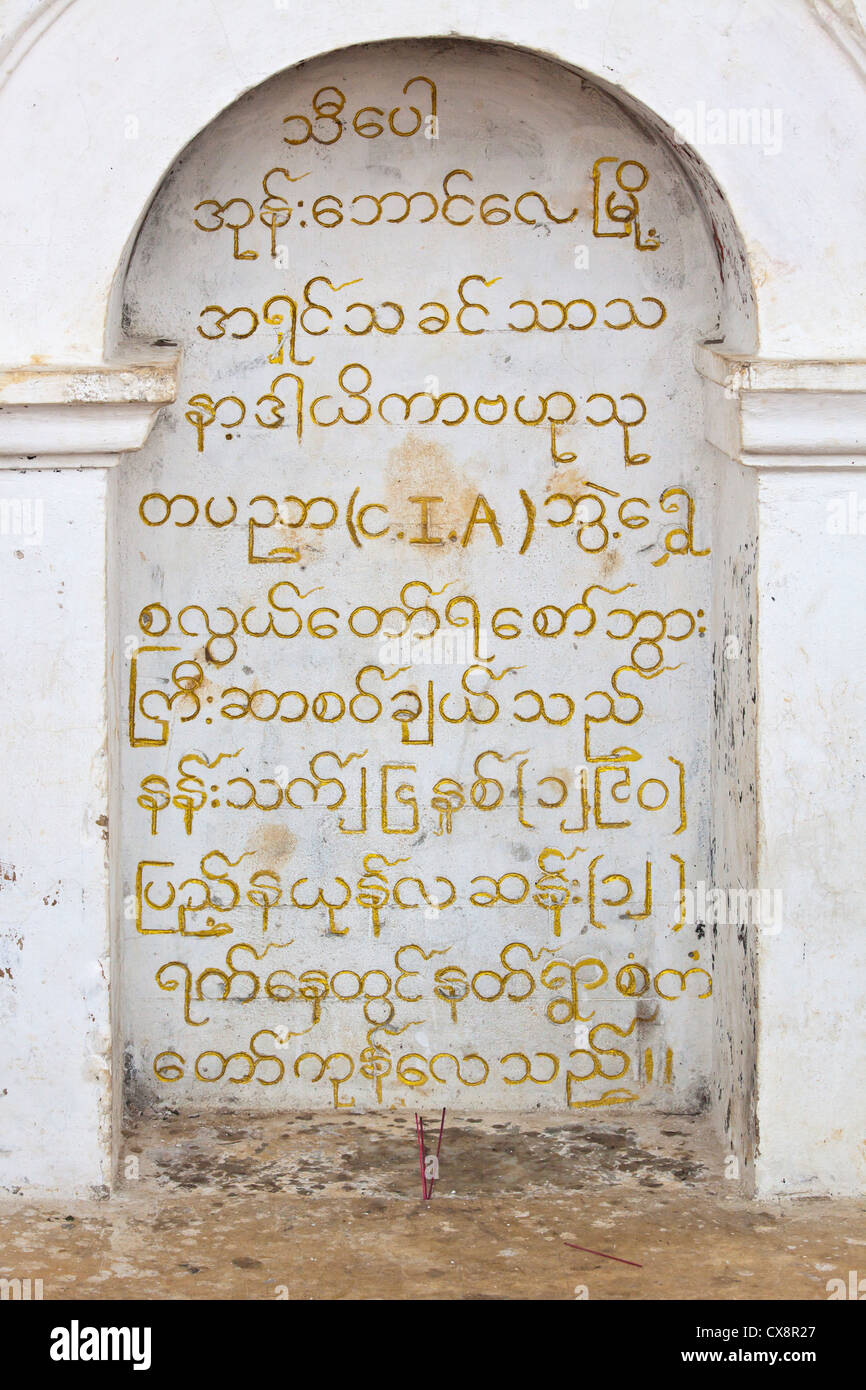 သီပေါ
အုန်းဘောင်လေမြို့
အရှင်သခင်သာသ
နာ့ဒါယိကာဗဟုသု
တပညာ(C.I.A)ဘွဲ့ရွှေ
စလွယ်တော်ရစော်ဘွား
ကြီးဆာစဝ်ချယ်သည်
နန်းသက်၂၄နှစ်[၁၂၉၀]
ပြည့်နယုန်လဆန်း[၁၂]
ရက်နေ့တွင်နတ်ရွာစံကံ
တော်ကုန်လေသည်။
alamy
Image ID: CX8R27
www.alamy.com